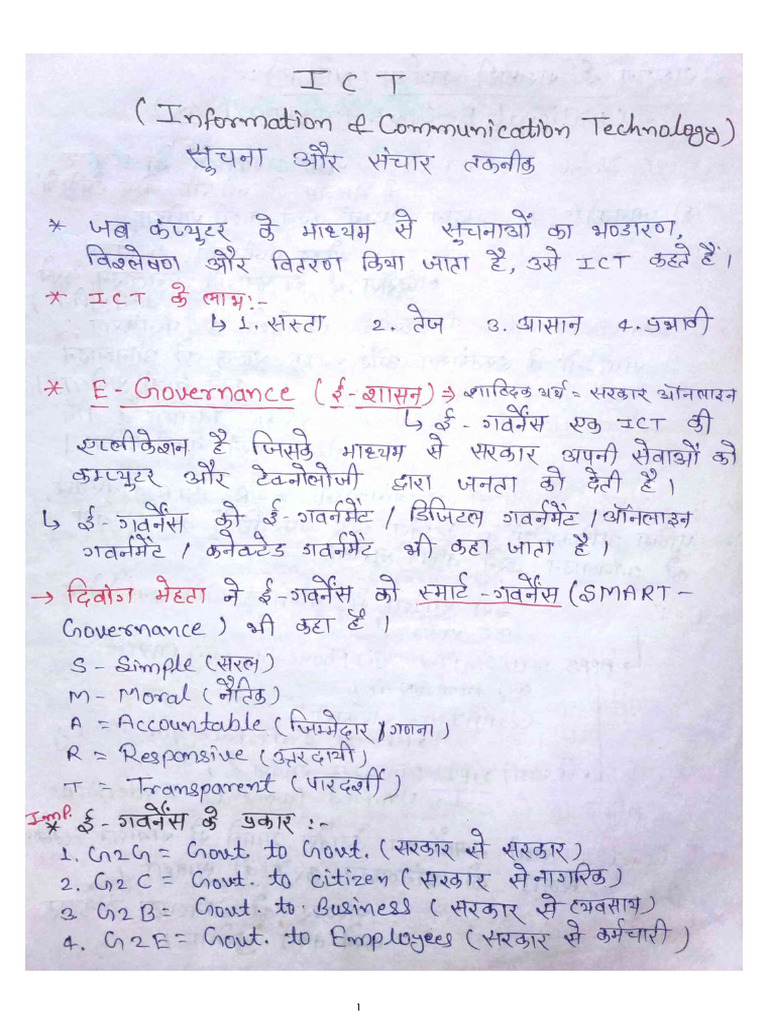 I C T
(Information & Communication Technology)
सुचना और संचार तकनीक
* जब कम्प्युटर के माध्यम से सुचनाओं का भण्डारण,
विश्लेषण और वितरण किया जाता है, उसे ICT कहते हैं।
* ICT के लाभ:-
↳ 1. सस्ता 2. तेज 3. आसान 4. प्रभावी
* E-Governance (ई-शासन) ⇒ शाब्दिक अर्थ = सरकार ऑनलाइन
↳ ई-गवर्नेंस एक ICT की
एप्लीकेशन है जिसके माध्यम से सरकार अपनी सेवाओं को
कम्प्युटर और टेक्नोलोजी द्वारा जनता को देती है।
↳ ई-गवर्नेंस को ई-गवर्नमेंट / डिजिटल गवर्नमेंट / ऑनलाइन
गवर्नमेंट / कनेक्टेड गवर्नमेंट भी कहा जाता है।
→ दिवांग मेहता ने ई-गवर्नेंस को स्मार्ट-गवर्नेंस (SMART-
Governance) भी कहा है।
S - Simple (सरल)
M - Moral (नैतिक)
A = Accountable (जिम्मेदार/गणना)
R = Responsive (उत्तरदायी)
T = Transparent (पारदर्शी)
Imp. * ई-गवर्नेंस के प्रकार :-
1. G2G = Govt to Govt. (सरकार से सरकार)
2. G2C = Govt. to Citizen (सरकार से नागरिक)
3. G2B = Govt. to Business (सरकार से व्यवसाय)
4. G2E = Govt. to Employees (सरकार से कर्मचारी)
1